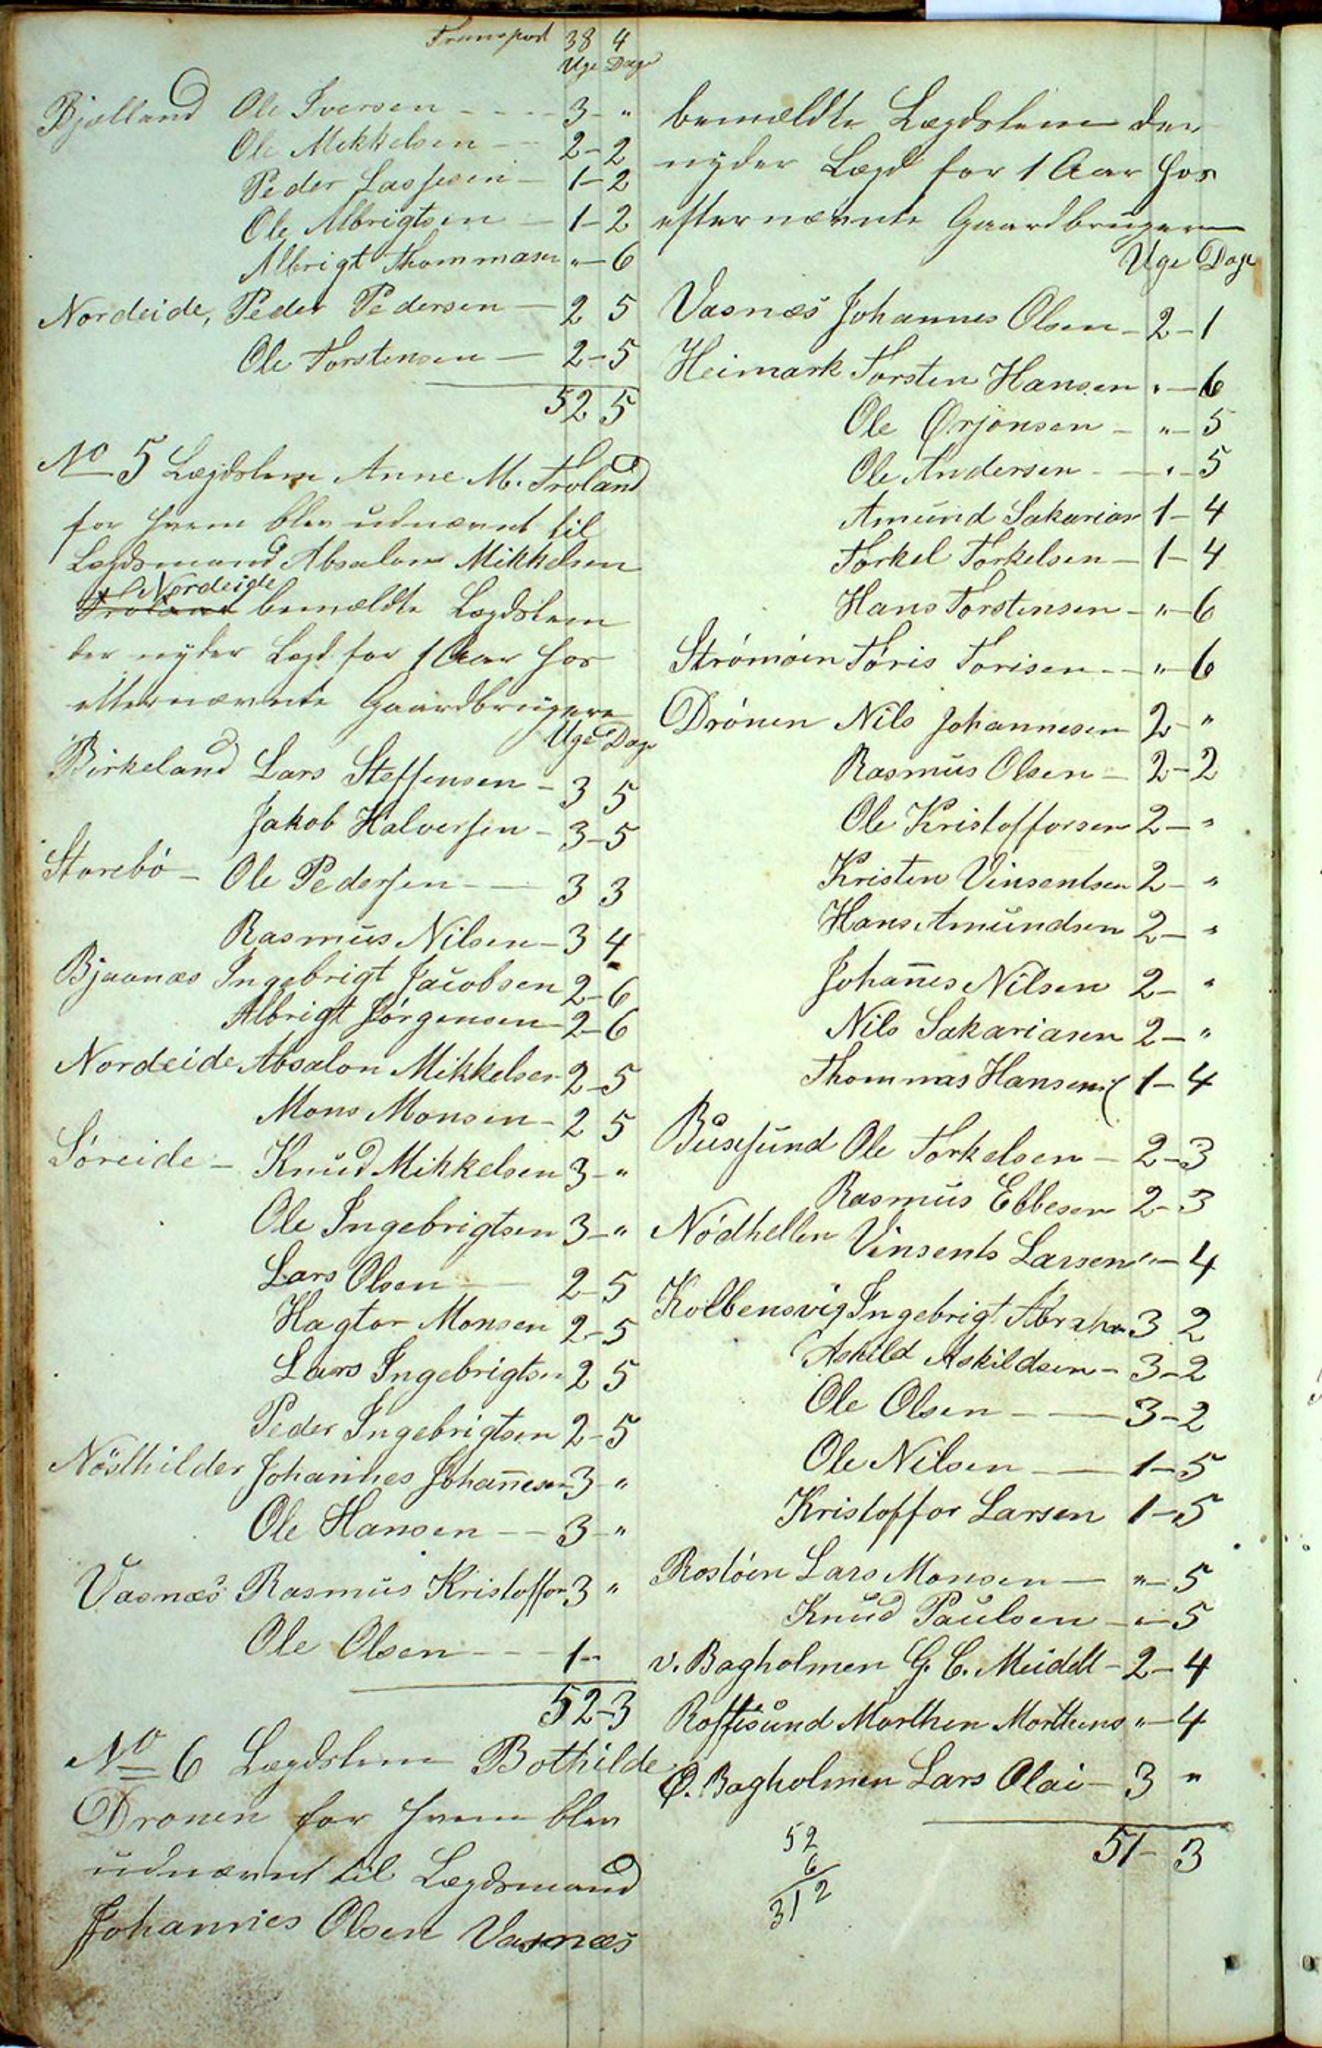 Transport 38 4
Uge Dage
Bjælland Ole Iversen - - - 3 - "
Ole Mikkelsen - - 2 - 2
Peder Lassesen - 1 - 2
Ole Albrigtsen - 1 - 2
Albrigt Thommasen " - 6
Nordeide, Peder Pedersen - 2 5
Ole Torstensen - 2 - 5
52 5
No 5 Lægdslem Anne M. Troland
for hvem blev udnævnt til
Lægdsmand Absalon Mikkelsen
Nordeide
Troland bemældte Lægdslem
der nyder Lægd for 1 Aar hos
efternævnte Gaardbrugere
Uge Dage
Birkeland Lars Steffensen - 3 5
Jakob Halversen - 3 - 5
Storebö - Ole Pedersen - - 3 3
Rasmus Nilsen - 3 4
Bjaanæs Ingebrigt Jacobsen 2 - 6
Albrigt Jörgensen - 2 - 6
Nordeide Absalon Mikkelsen 2 - 5
Mons Monsen - 2 5
Söreide - Knud Mikkelsen 3 - "
Ole Ingebrigtsen 3 - "
Lars Olsen - 2 - 5
Hagtor Monsen 2 - 5
Lars Ingebrigtsen 2 5
Peder Ingebrigtsen 2 - 5
Nösthilder Johannes Johan̄esen 3 - "
Ole Hansen - - 3 - "
Vasnæs Rasmus Kristoffor 3 "
Ole Olsen - - - 1 - "
52 - 3
No 6 Lægdslem Bothilde
Dronen for hvem blev
udnævnt til Lægdsmand
Johannes Olsen Vasnæs
bemældte Lægdslem der
nyder Lægd for 1 Aar hos
efternævnte Gaardbrugere
Uge Dage
Vasnæs Johannes Olsen - 2 - 1
Heimark Torsten Hansen " - 6
Ole Ørjonsen - " - 5
Ole Andersen - - " - 5
Amund Sakarias 1 - 4
Torkel Torkelsen - 1 - 4
Hans Torstensen - " - 6
Strömöen Töris Torisen - - " - 6
Drönen Nils Johannesen 2 - "
Rasmus Olsen - 2 - 2
Ole Kristofforsen 2 - "
Kristen Vinsentsen 2 - "
Hans Amundsen 2 - "
Johan̄es Nilsen 2 - "
Nils Sakariasen 2 - "
Thommas Hansen 1 - 4
Busesund Ole Torkelsen - 2 - 3
Rasmus Ebbesen 2 - 3
Nödhellen Vinsents Larsen " - 4
Kolbensvig Ingebrigt Abraha 3 2
Askild Askildsen - 3 - 2
Ole Olsen - - 3 - 2
Ole Nilsen - 1 - 5
Kristoffor Larsen 1 - 5
Rostöen Lars Monsen - " - 5
Knud Paulsen - " - 5
v. Bagholmen G. C. Meidell - 2 - 4
Roffesund Morthen Morthens " - 4
Ø. Bagholmen Lars Olai - 3 "
51 - 3
52
6
312